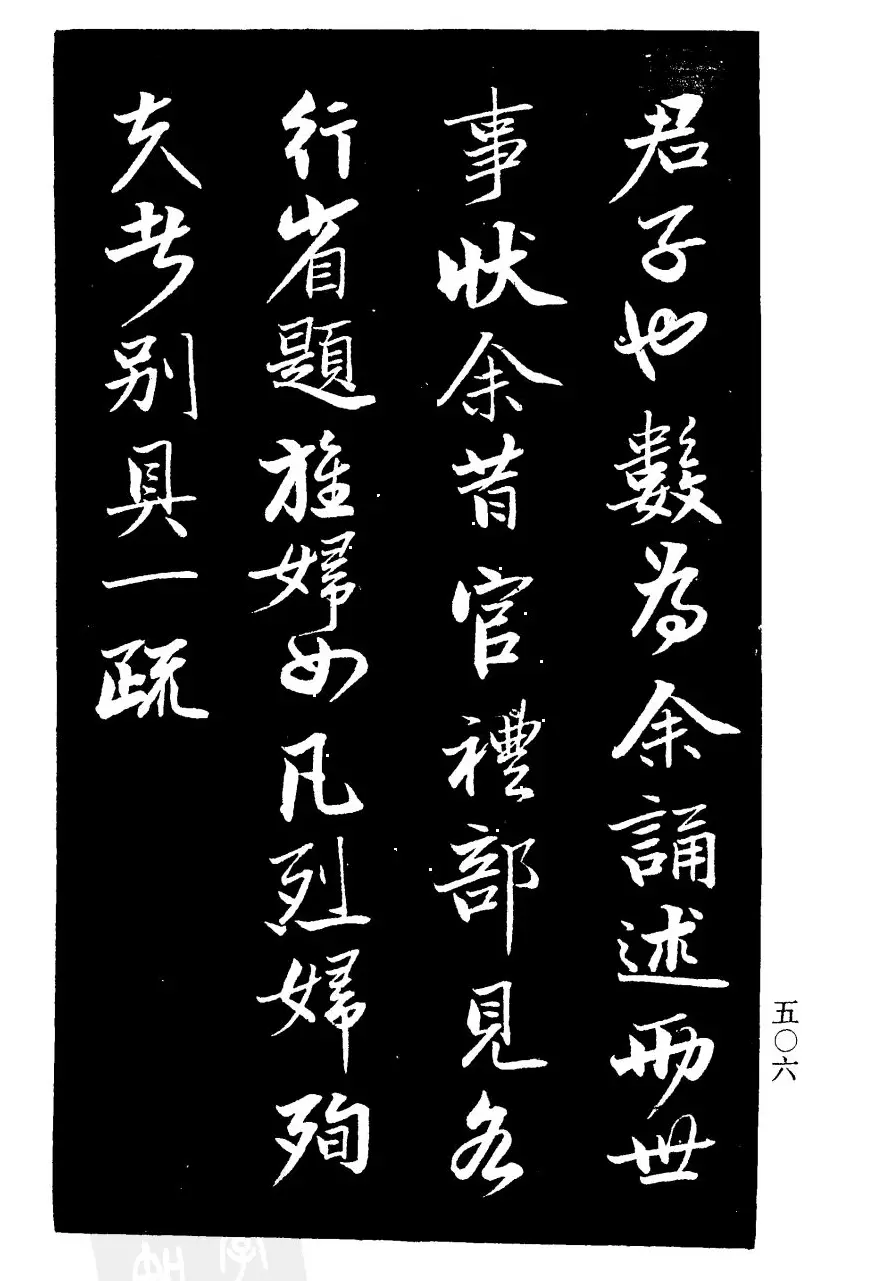 君子也數為余誦述兩世
事狀余昔官禮部見各
行省題旌婦女凡烈婦殉
夫者別具一疏
五〇六